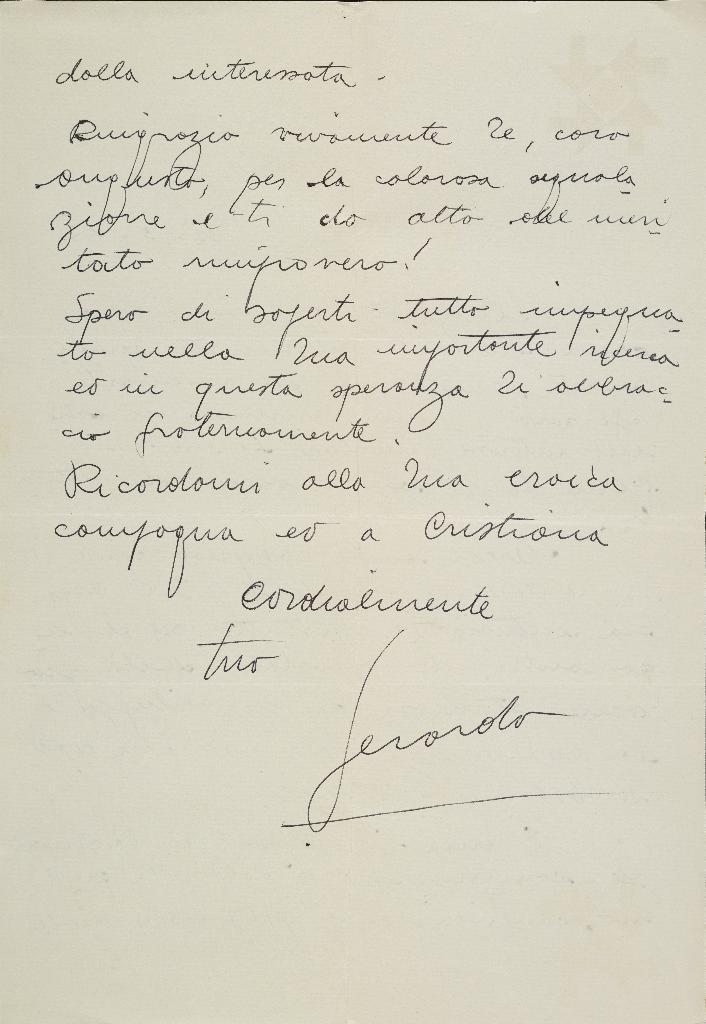 dalla interessata.
Ringrazio vivamente te, caro
Augusto, per la calorosa segnala
zione e ti do atto del meri
tato rimprovero!
Spero di saperti tutto impegna
to nella tua importante ricerca
ed in questa speranza ti abbrac-
cio fraternamente.
Ricordami alla tua eroica
compagna ed a Cristiana
Cordialmente
tuo
Gerardo